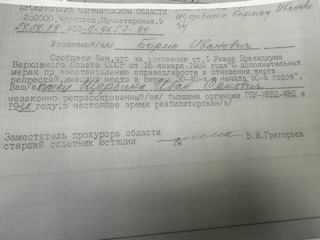 ПРОКУРАТУРА ЧЕРНИГОВСКОЙ ОБЛАСТИ
250000, Чернигов, Пролетарская, 9
Щербина Борису Ивановичу
Уважаемый/ая/ Борис Иванович
Сообщаем Вам, что на основании ст. 1 Указа Президиума
Верховного Совета СССР от 16 января 1989 года "О дополнительных
мерах по восстановлению справедливости в отношении жертв
репрессий, имевших место в период 30-40-х и начала 50-х годов".
Ваш/а/ Щербина Иван
незаконно репрессированный/ая/ бывшими органами ГПУ-НКВД-МВД в
году, в настоящее время реабилитирован/а/
Заместитель прокурора области
старший советник юстиции В.И.Григорьев